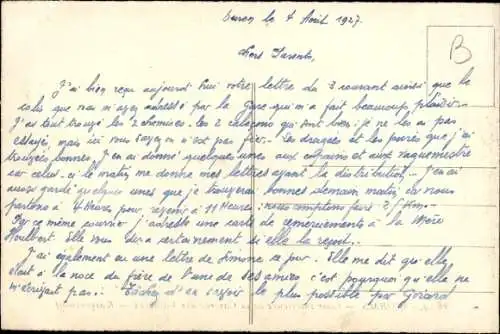 le 4 Avril 1927.
B
Chers Parents,
J'ai bien reçu aujourd'hui votre lettre du 3 courant ainsi que le
colis que vous m'avez adressé par la Gare qui m'a fait beaucoup plaisir.
J'ai tout trouvé les 2 chemises, les 2 caleçons qui sont bien; je ne les ai pas
essayés, mais ici vous savez on n'est pas fier. Les dragées et les purées que j'ai
trouvés bonnes, j'en ai donné quelques unes aux copains et aux vaguemestre
car celui-ci le matin me donne mes lettres avant la distribution. J'en ai
aussi gardé quelques unes que je trouverai bonnes demain matin car nous
partons à 4 Heures pour revenir à 11 Heures; nous comptons faire 25 Km.
Par ce même courrier j'adresse une carte de remerciements à la Mère
Houlbert. Elle vous dira certainement si elle la reçoit.
J'ai également eu une lettre de Simone ce jour. Elle me dit qu'elle
était à la noce du frère de l'une de ses amies c'est pourquoi qu'elle ne
m'écrivait pas. Tâchez d'en savoir le plus possible par Gérard